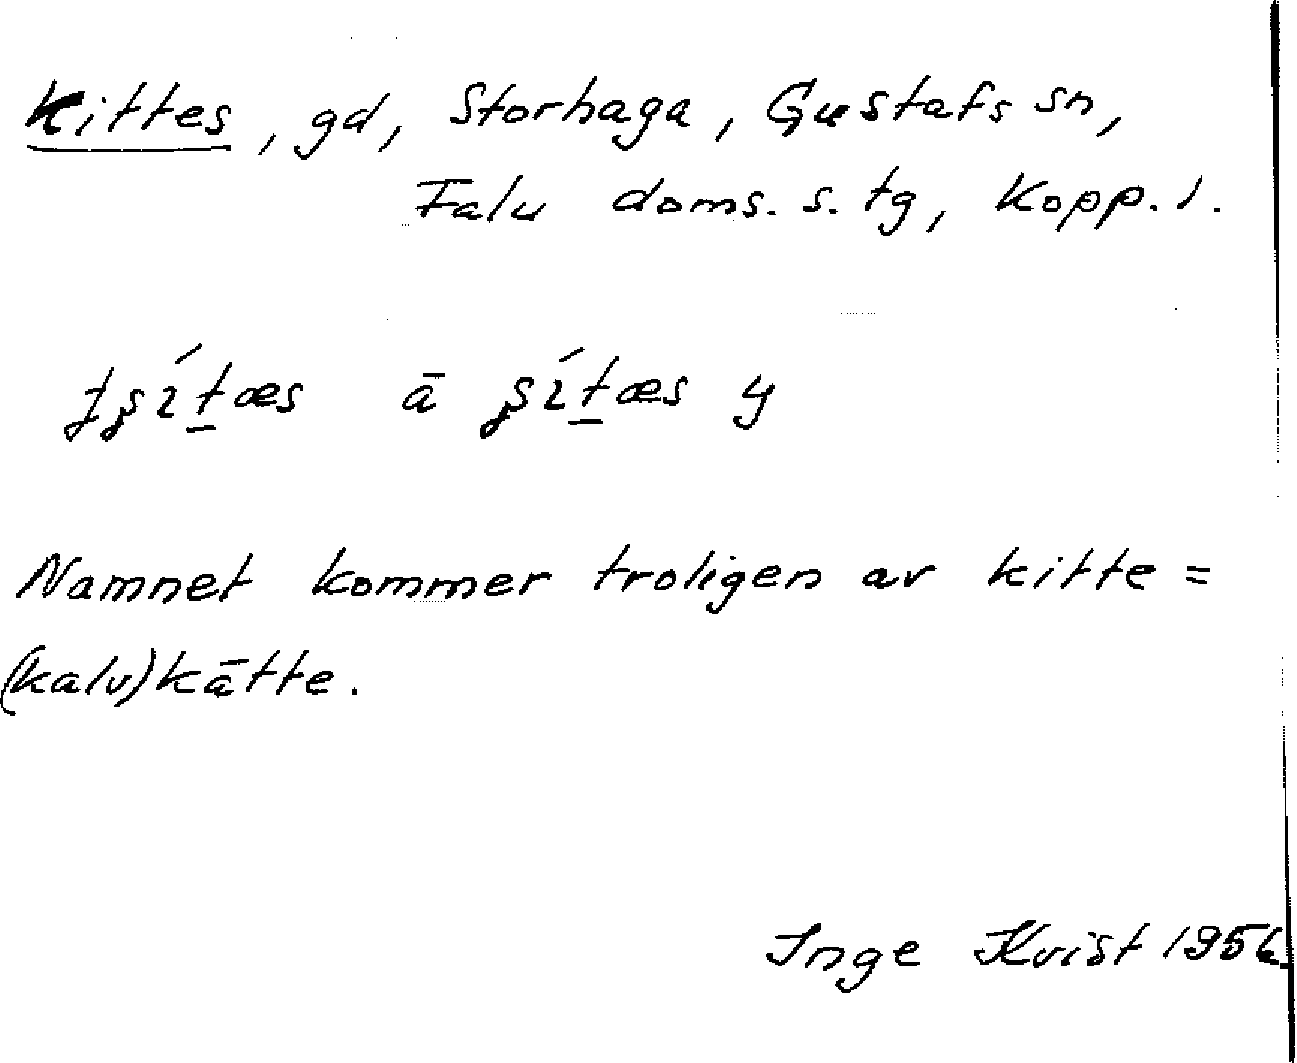 Kittes, gd, Storhaga, Gustafs sn,
Falu doms. s. tg, Kopp. l.
ā y
Namnet kommer troligen av kitte =
(kalv)kätte.
Inge Kvist 1956